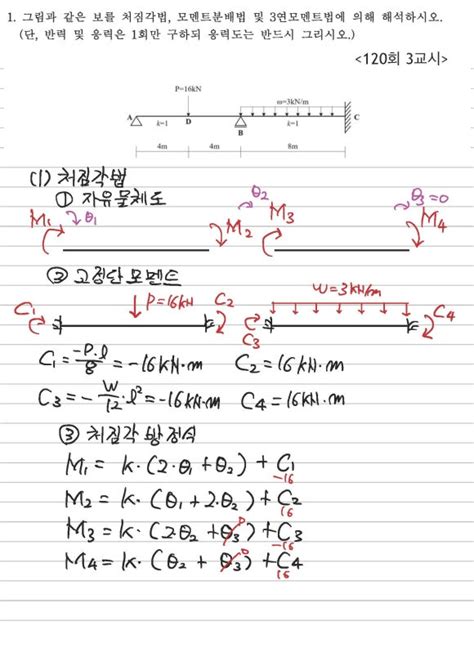 1. 그림과 같은 보를 처짐각법, 모멘트분배법 및 3연모멘트법에 의해 해석하시오.
(단, 반력 및 응력은 1회만 구하되 응력도는 반드시 그리시오.)
<120회 3교시>
P=16kN
ω=3kN/m
A k=1 D k=1 C
B
4m 4m 8m
(1) 처짐각법
① 자유물체도
M₁ θ₁ M₂ θ₂ M₃ θ₃=0 M₄
② 고정단모멘트
C₁ P=16kN C₂ W=3kN/m C₄
C₃
C₁ = -P·l/8 = -16kN·m C₂ = 16kN·m
C₃ = - W/12 · l² = -16kN·m C₄ = 16kN·m
③ 처짐각 방정식
M₁ = k·(2·θ₁ + θ₂) + C₁
-16
M₂ = k·(θ₁ + 2·θ₂) + C₂
16
M₃ = k·(2θ₂ + θ₃) + C₃
0
-16
M₄ = k·(θ₂ + θ₃) + C₄
0
16